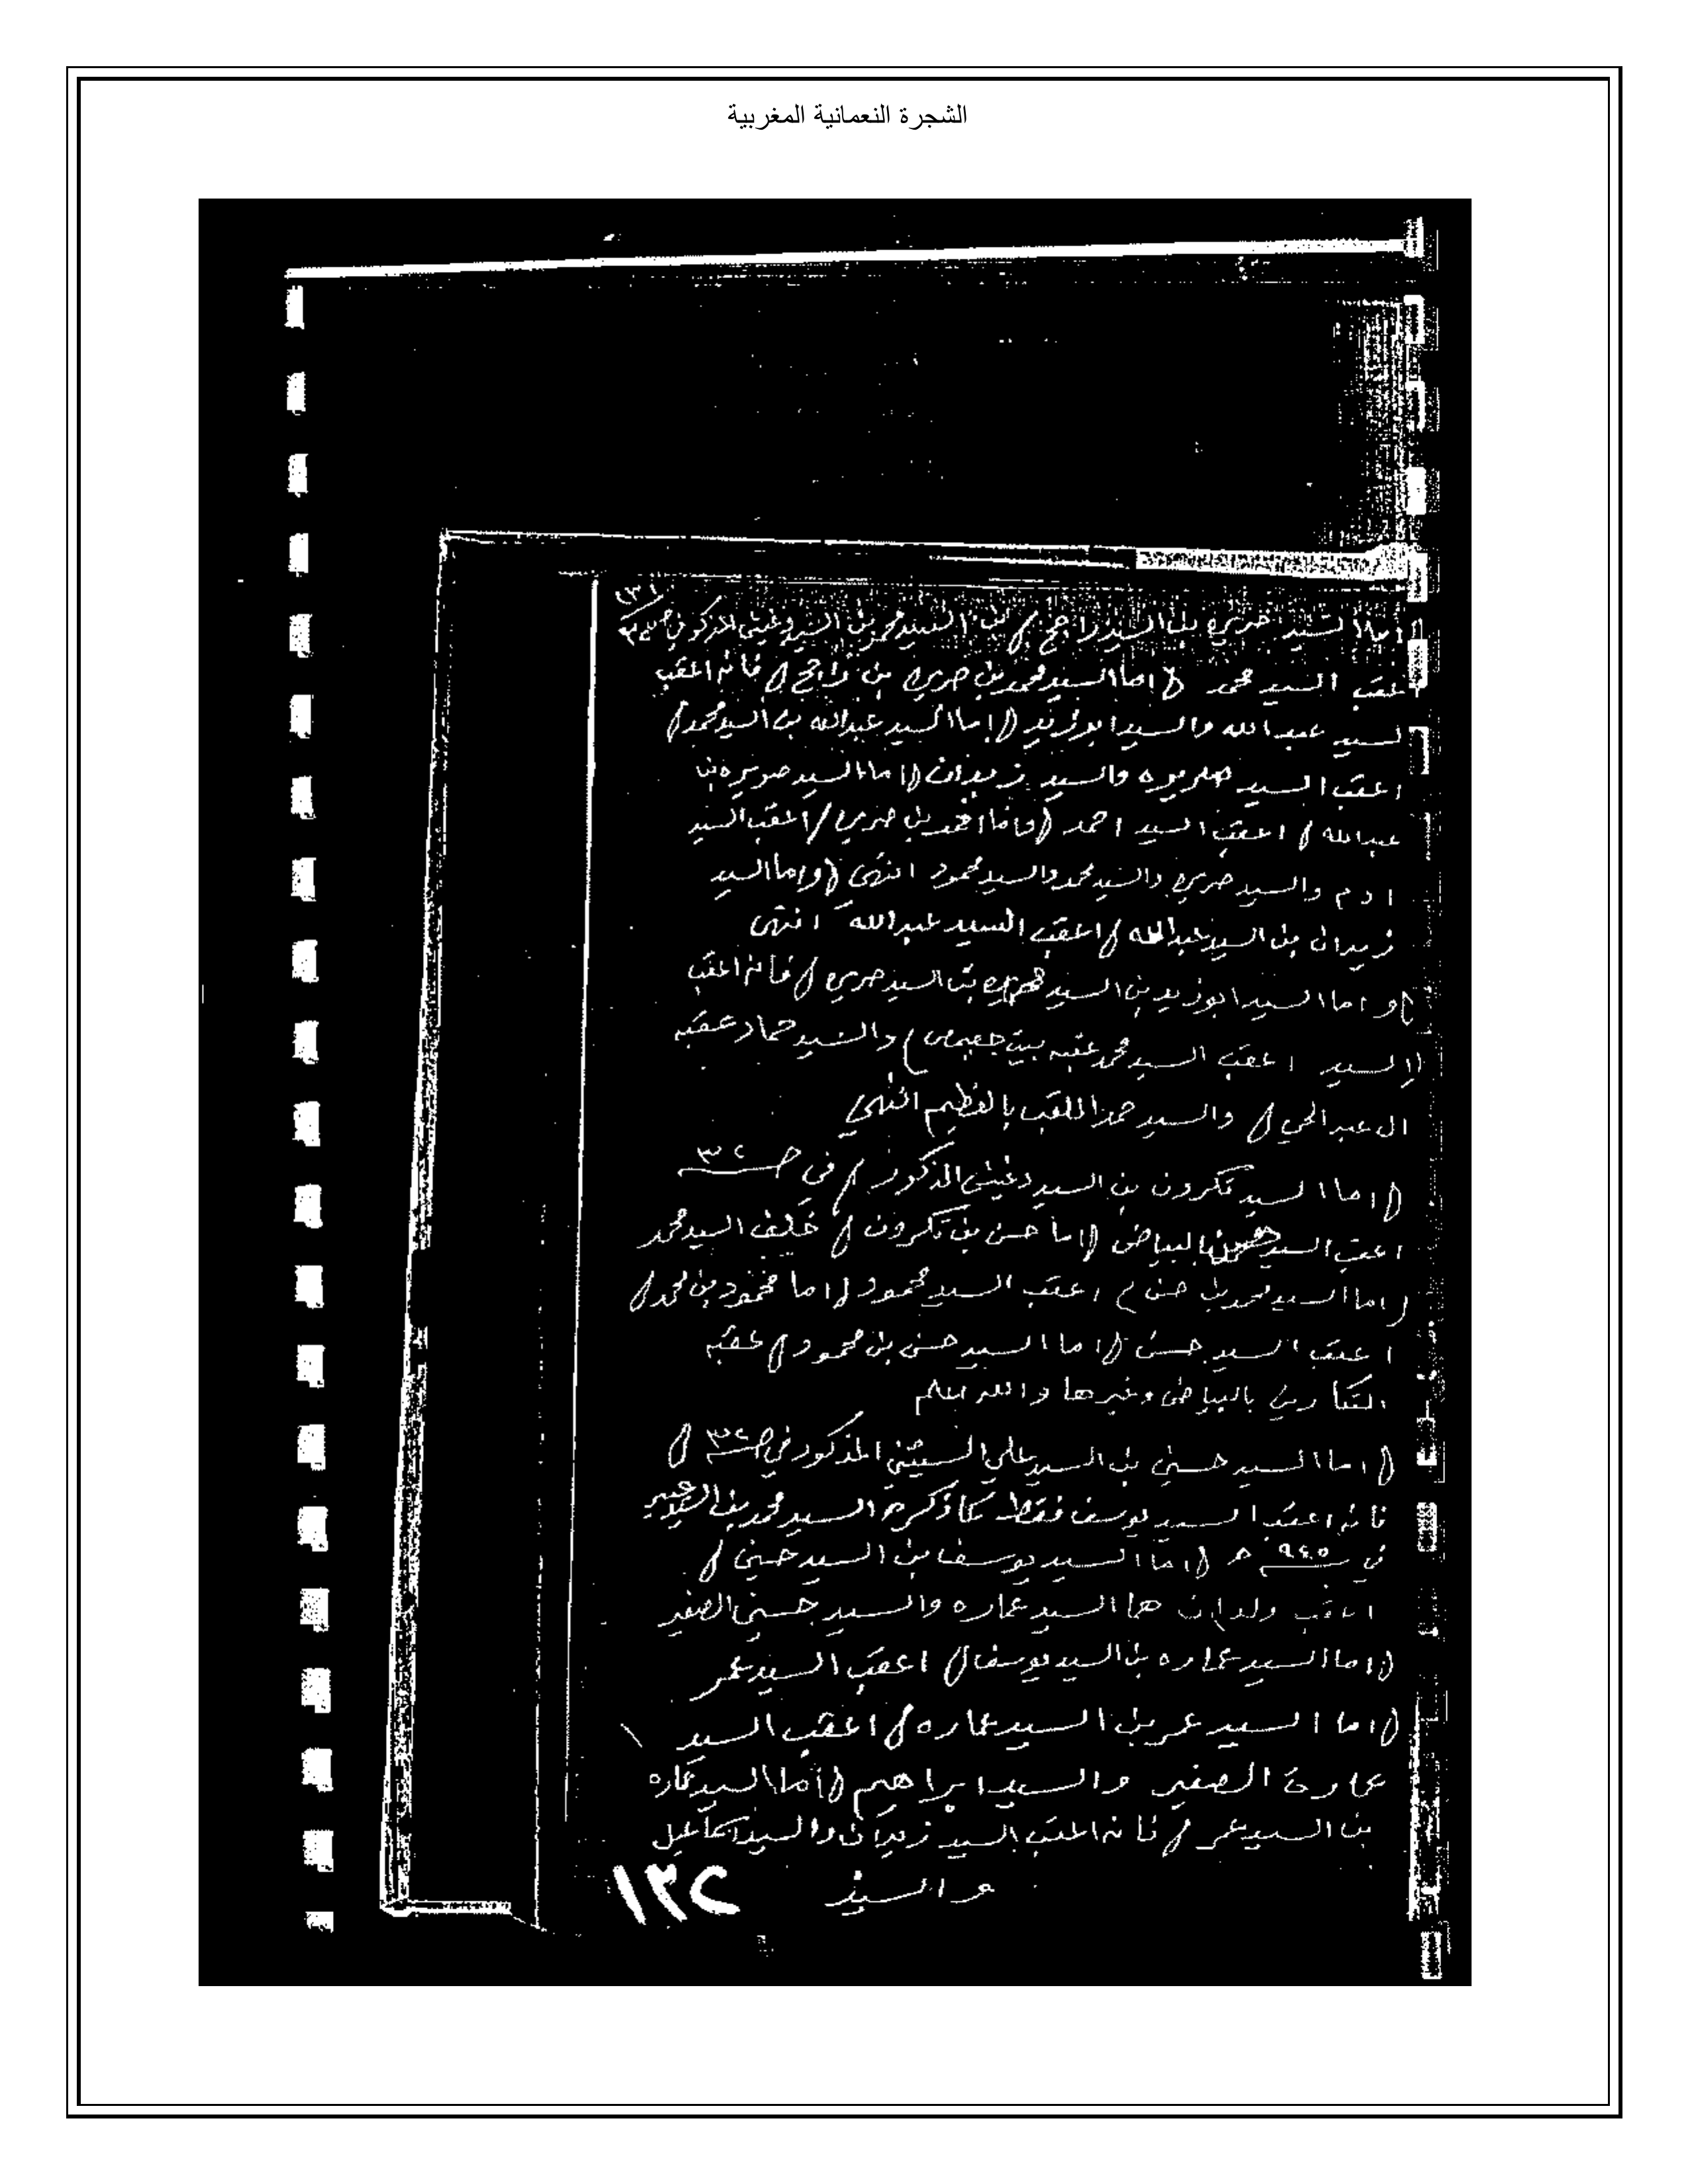 الشجرة النعمانية المغربية
اما السيد بن السيد راجح بن السيد محمد بن السيد المذكور في
عقب السيد محمد اما السيد محمد بن بن راجح فانه اعقب
السيد عبدالله والسيد ابوزيد (اما السيد عبدالله بن السيد محمد)
اعقب السيد والسيد زيدان (اما السيد بن
عبدالله) اعقب السيد احمد (فاما احمد بن) اعقب السيد
ادم والسيد والسيد محمد والسيد محمود انتهى (واما السيد
زيدان بن السيد عبدالله) اعقب السيد عبدالله انتهى
(واما السيد ابوزيد بن السيد بن السيد) فانه اعقب
السيد اعقب السيد محمد عقبه بيت والسيد حماد عقبه
ال عبدالحي) والسيد حمد الملقب بالفظيم انتهى
(اما السيد تكرون بن السيد المذكور) في صـ ٣٢
اعقب السيد بالبياض (اما حسن بن تكرون) خلف السيد محمد
(اما السيد محمد بن حسن) اعقب السيد محمود (اما محمود بن محمد)
اعقب السيد حسن (اما السيد حسن بن محمود) عقبه
التكارين بالبياض وغيرها والله اعلم
(اما السيد حسين بن السيد علي المذكور في صـ ٣٢)
فانه اعقب السيد يوسف فقط كما ذكره السيد محمد بن
في ٩٤٥ هـ (اما السيد يوسف بن السيد حسين)
اعقب ولدان هما السيد عماره والسيد حسين الصغير
(اما السيد عماره بن السيد يوسف) اعقب السيد عمر
(اما السيد عمر بن السيد عماره) اعقب السيد
عمارة الصغير والسيد ابراهيم (أما السيد عماره
بن السيد عمر) فانه اعقب السيد زيدان والسيد اسماعيل
والسيد
١٣٢